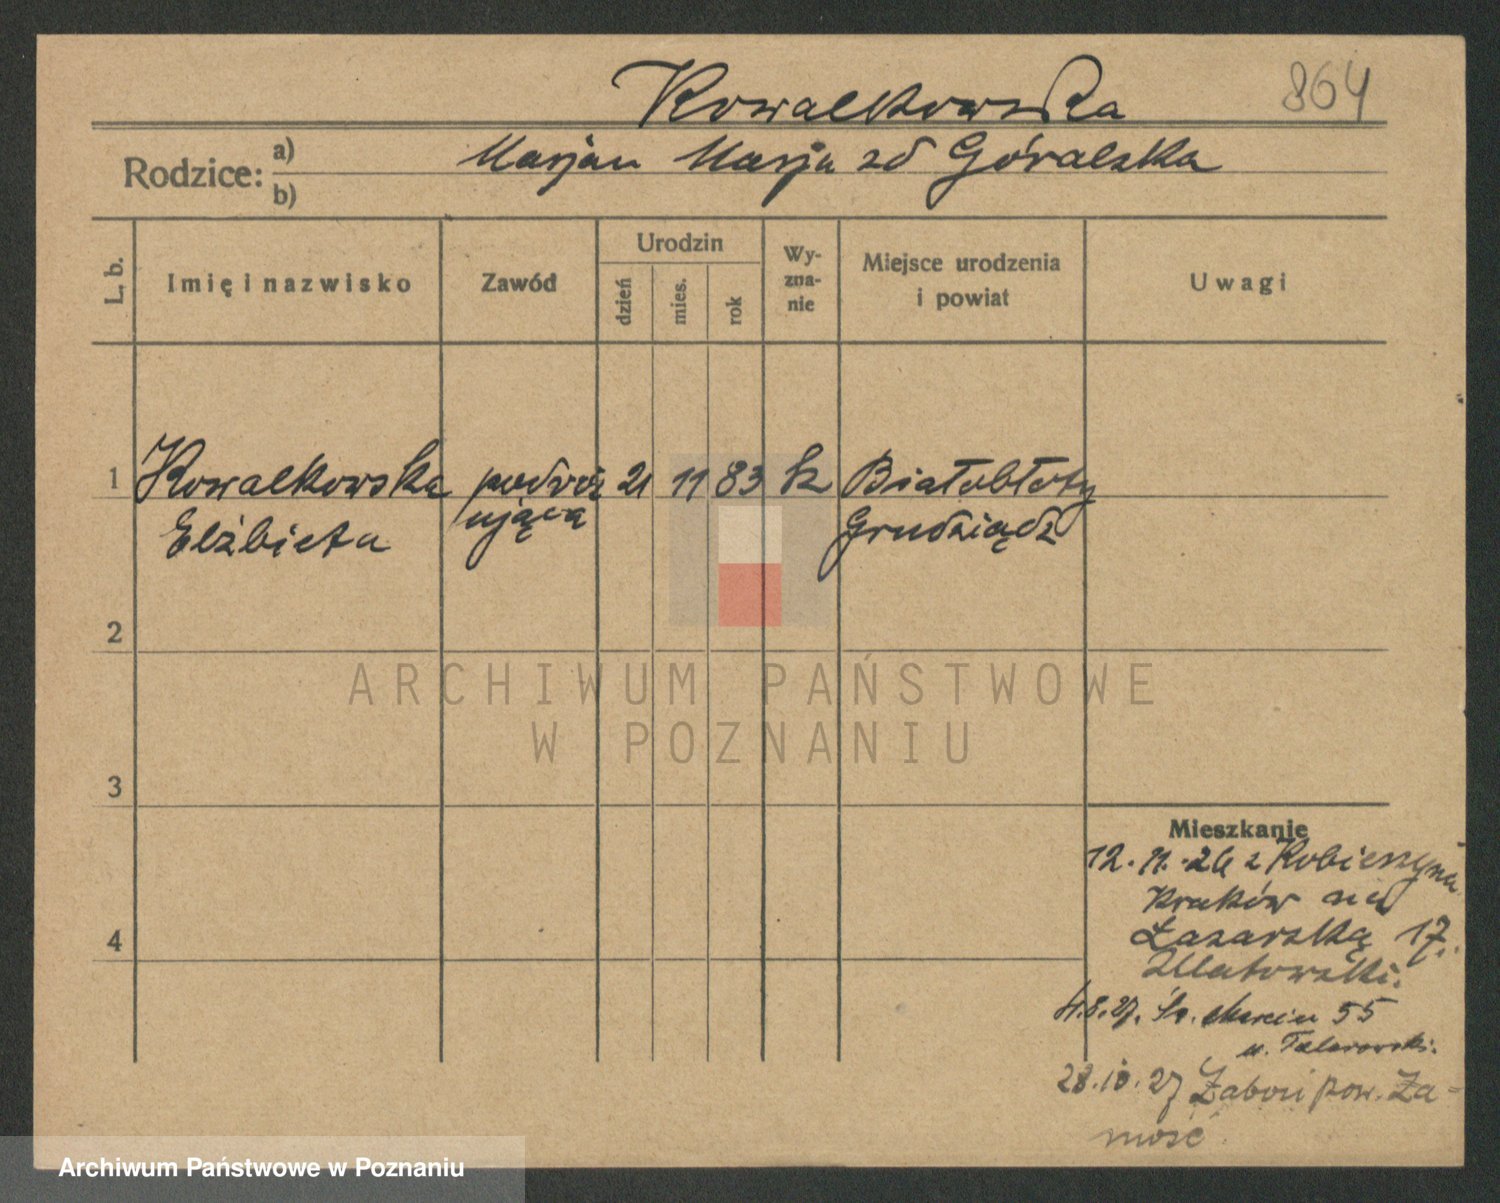 Kowalkowska 864
Rodzice: a) Marjan Marja zd Góralska
b)
L. b.
Imię i nazwisko
Zawód
Urodzin
dzień
mies.
rok
Wy-
zna-
nie
Miejsce urodzenia
i powiat
Uwagi
1 Kowalkowska podróż 21 11 83 k Białobłoty
Elżbieta ująca Grudziądz
2
ARCHIWUM PAŃSTWOWE
W POZNANIU
3
Mieszkanie
12.11.26 z Kobierzyna
Kraków na
4 Łazarską 17.
4.8.27. Św. Marcin 55
u.
28.10.27 pow. Za-
mość
Archiwum Państwowe w Poznaniu